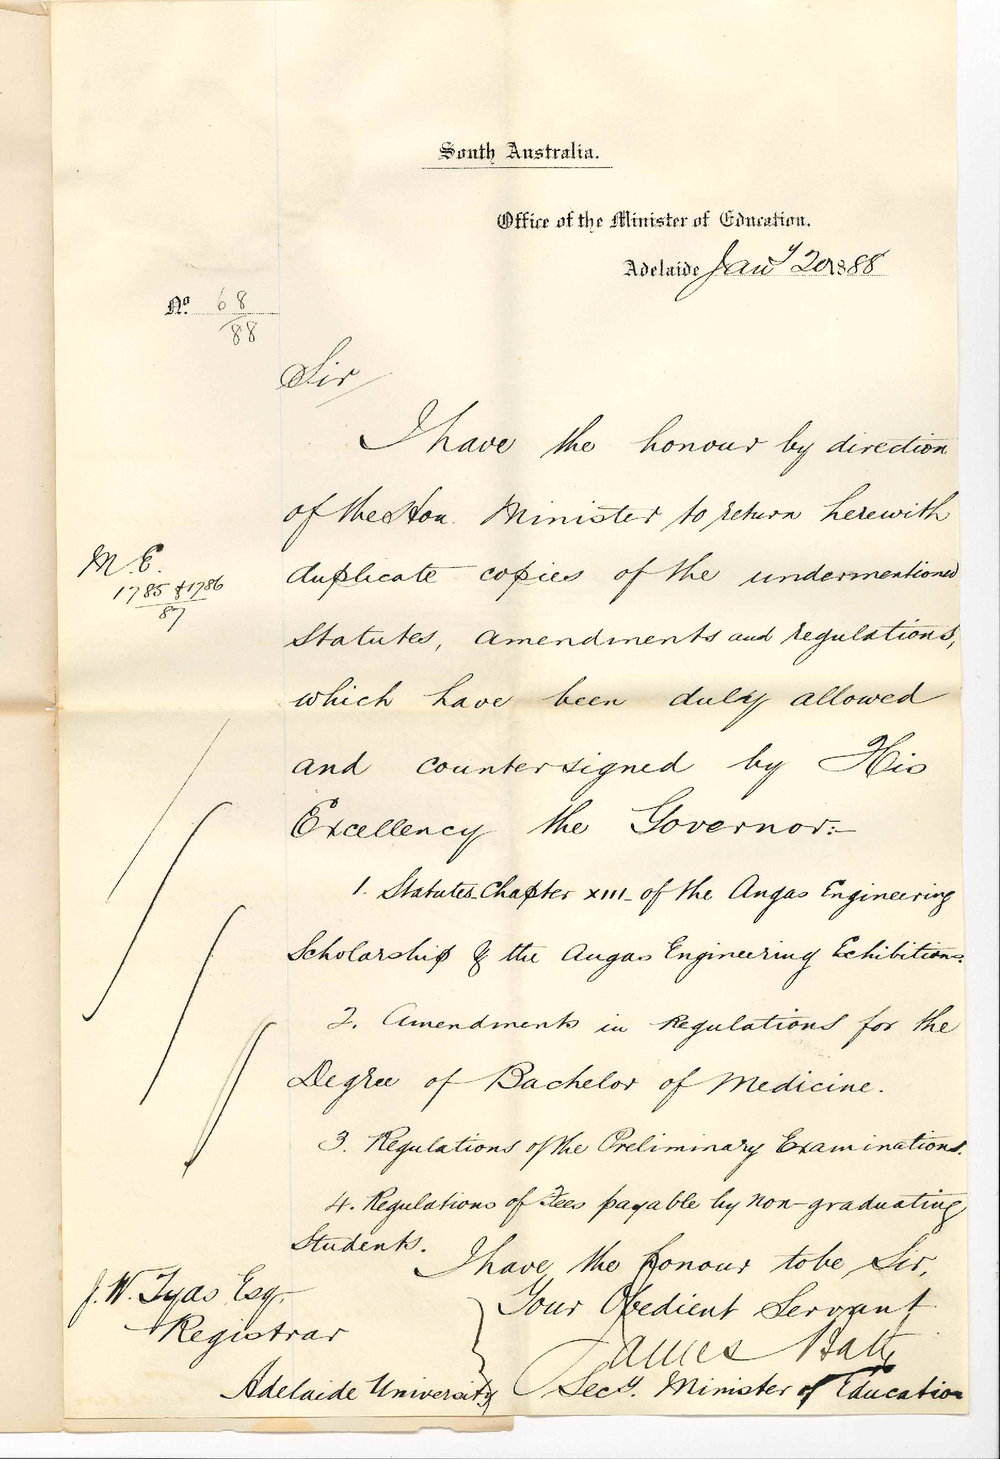 South Australia.
Office of the Minister of Education.
Adelaide Jany 20 1888
No. 68
88
Sir
I have the honour by direction
of the Hon. Minister to return herewith
M.E.
1785 & 1786
87
duplicate copies of the undermentioned
Statutes, amendments and regulations,
which have been duly allowed
and countersigned by His
Excellency the Governor:-
1. Statutes Chapter XIII of the Angas Engineering
Scholarship & the Angas Engineering Exhibitions.
2. Amendments in Regulations for the
Degree of Bachelor of Medicine.
3. Regulations of the Preliminary Examinations.
4. Regulations of Fees payable by non-graduating
Students.
I have the honour to be Sir,
Your Obedient Servant
James Bath
Secy. Minister of Education
J. W. Tyas Esq.
Registrar
Adelaide University